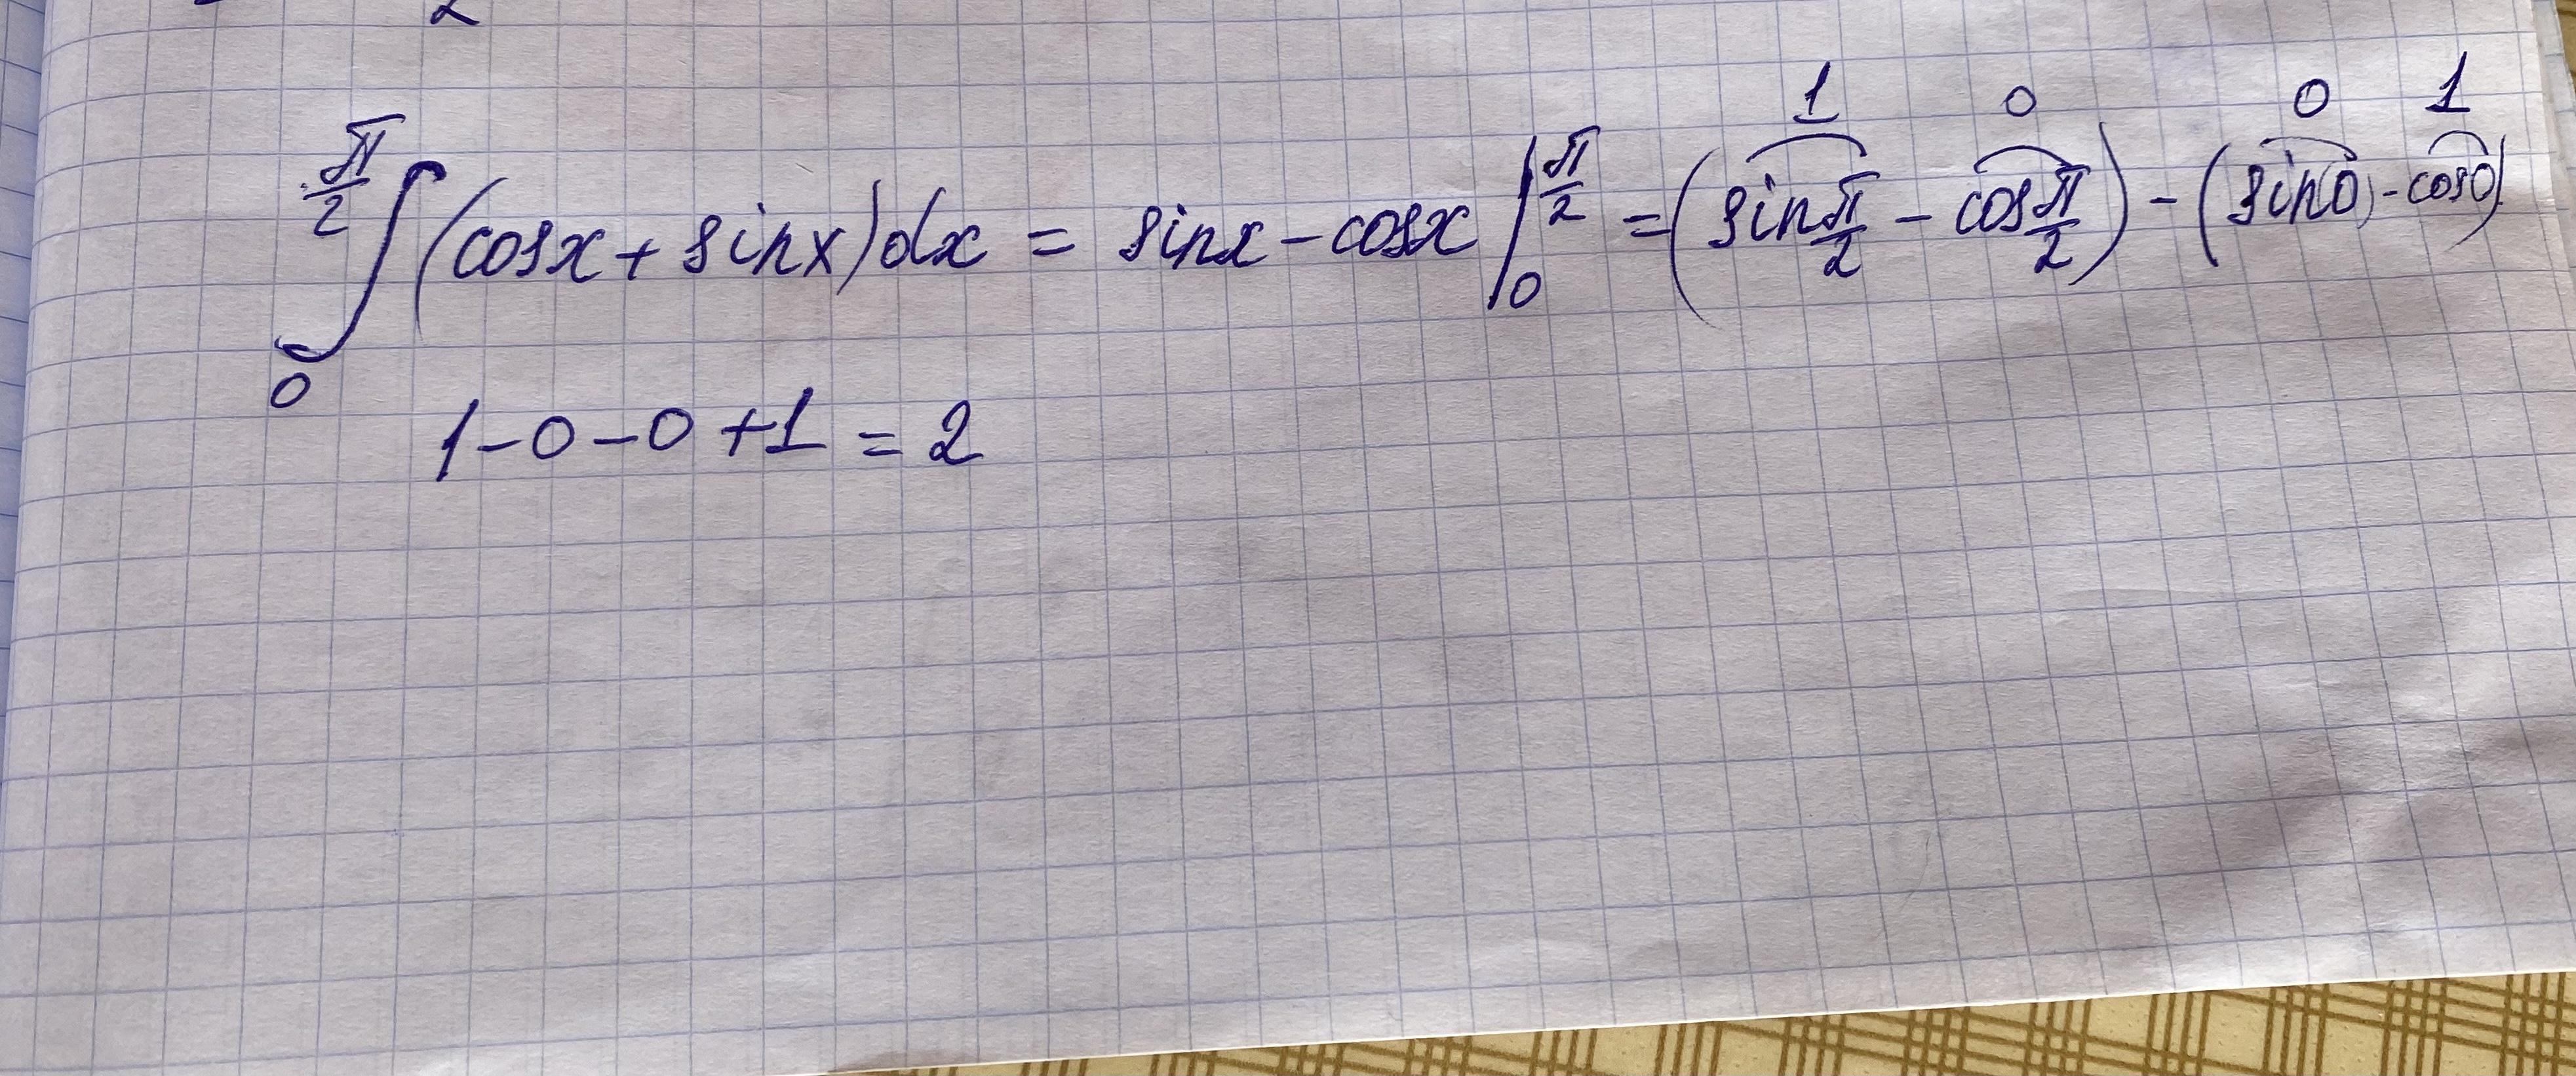 2
1 0 0 1
π/2 ∫ 0 (cosx + sinx)dx = sinx − cosx |0 π/2 = (sin π/2 − cos π/2) − (sin0) − cos0)
1 − 0 − 0 + 1 = 2